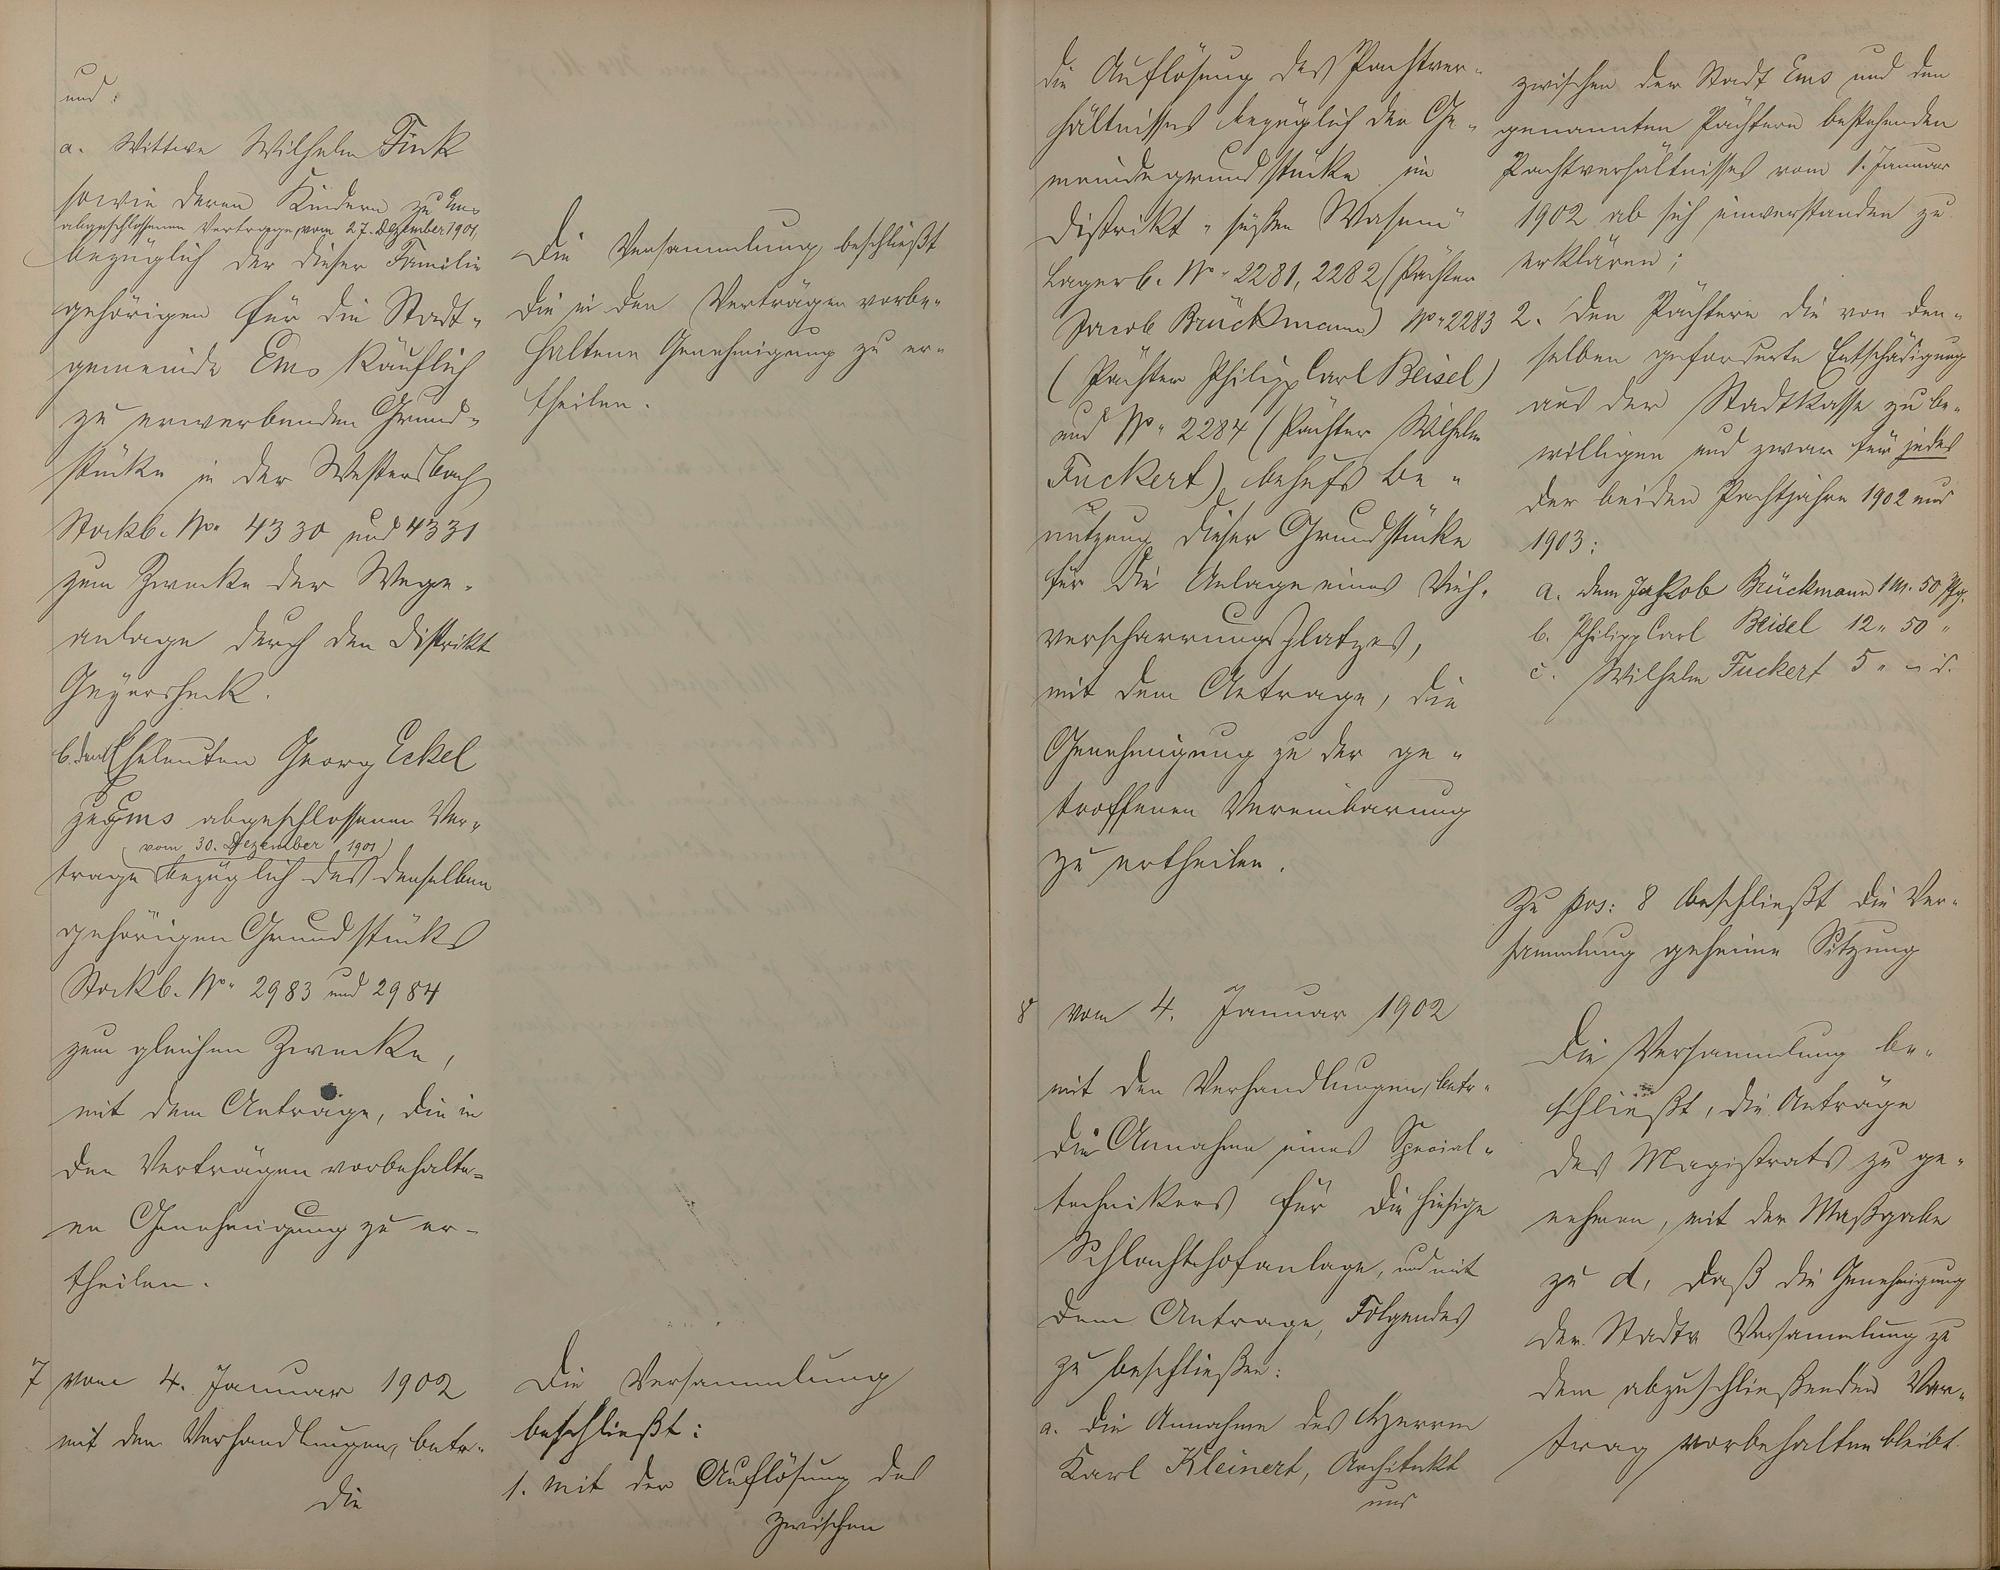 und:
a. Wittwe Wilhelm Fink
sowie deren Kindern zu Ems
abgeschlossenen Vertrage vom 27. Dezember 1901,
bezüglich der dieser Familie
gehörigen für die Stadt-
gemeinde Ems käuflich
zu erwerbenden Grund-
stücke in der Westersbach
Stockb. No. 4330 und 4331
zum Zwecke der Wege-
anlage durch den Distrikt
Geyersheck.
b. den Eheleuten Georg Eckel
zu Ems abgeschlossenen Ver-
(vom 30. Dezember 1901)
trage bezüglich des denselben
gehörigen Grundstücks
Stockb. No. 2983 und 2984
zum gleichen Zwecke,
mit dem Antrage, die in
den Verträgen vorbehalte-
ne Genehmigung zu er-
theilen.
7 vom 4. Januar 1902
mit den Verhandlungen, betr.
die
Die Versammlung beschließt
die in den Verträgen vorbe-
haltene Genehmigung zu er-
theilen.
Die Versammlung
beschließt:
1. mit der Auflösung des
zwischen
die Auflösung des Pachtver-
hältnisses bezüglich der Ge-
meindegrundstücke im
Distrikt "süßen Wasem"
Lagerb. No. 2281, 2282 (Pächter
Jacob Brückmann) No. 2283
(Pächter Philipp Carl Beisel)
und No. 2284 (Pächter Wilhelm
Fuckert) behufs Be-
nutzung dieser Grundstücke
für die Anlage eines Vieh-
verscharrungsplatzes,
mit dem Antrage, die
Genehmigung zu der ge-
troffenen Vereinbarung
zu ertheilen.
8 vom 4. Januar 1902
mit den Verhandlungen, betr.
die Annahme eines Special-
technikers für die hiesige
Schlachthofanlage, und mit
dem Antrage, Folgendes
zu beschließen:
a. die Annahme des Herrn
Karl Kleinert, Architekt
und
zwischen der Stadt Ems und den
genannten Pächtern bestehenden
Pachtverhältnisses vom 1. Januar
1902 ab sich einverstanden zu
erklären;
2. den Pächtern die von den-
selben geforderte Entschädigung
aus der Stadtkasse zu be-
willigen und zwar für jedes
der beiden Pachtjahre 1902 und
1903:
a. dem Jakob Brückmann 1 M. 50 Pfg.
b. Philipp Carl Beisel 12 " 50 "
c. Wilhelm Fuckert 5 " - "
Zu pos: 8 beschließt die Ver-
sammlung geheime Sitzung
Die Versammlung be-
schließt, die Anträge
des Magistrats zu ge-
nehmen, mit der Maßgabe
zu d, daß die Genehmigung
der Stadtv Versammlung zu
dem abzuschließenden Ver-
trag vorbehalten bleibt.